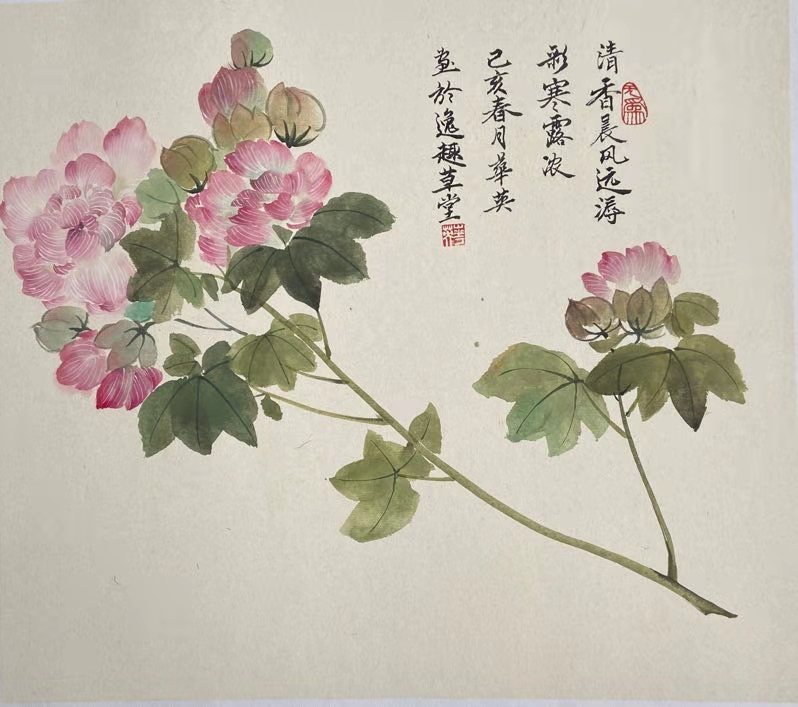 清香晨风远溽
彩寒露浓
己亥春月華英
畫於逸趣草堂